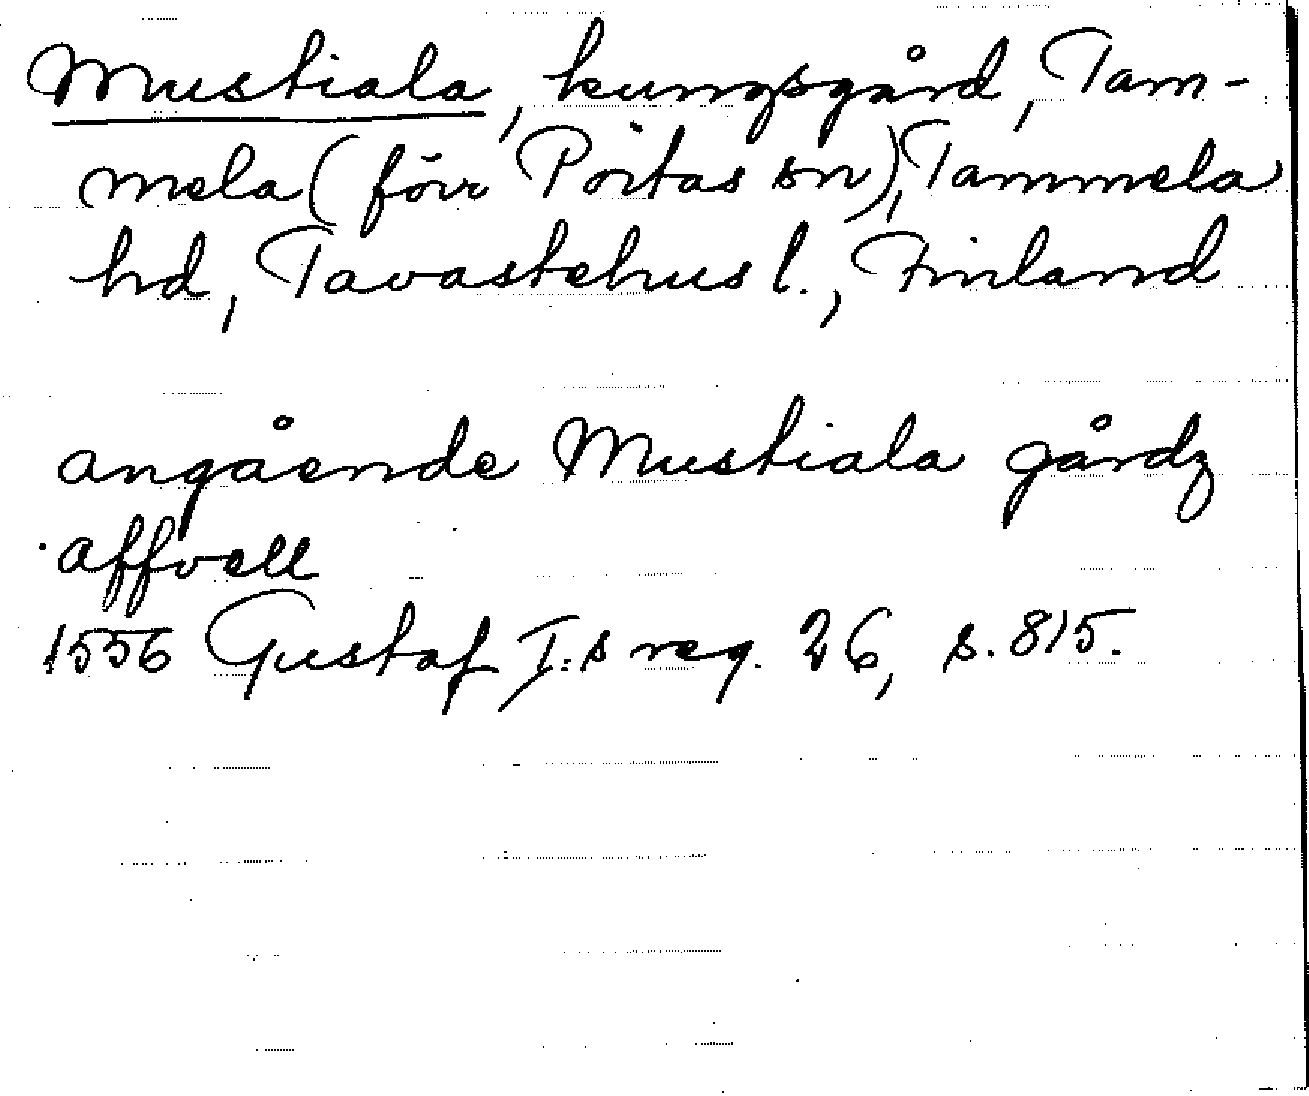 Mustiala, kungsgård, Tam-
mela (förr Portas sn), Tammela
hd, Tavastehus l., Finland
angående Mustiala gårdz
affvell
1556 Gustaf I:s reg. 26, s. 815.